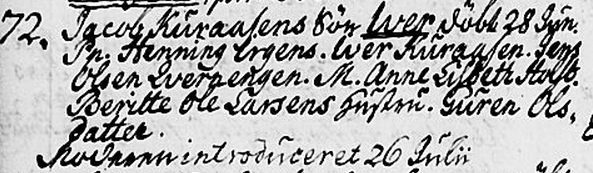 72. Jacob Kuraasens Søn Iver døbt 28 Jun.
Fn. Henning Irgens. Iver Kuraasen. Jens
Olsen Qvernengen. M. Anne Lisbeth Holst.
Beritte Ole Larsens Hustru. Guren Ols-
datter.
Moderen introduceret 26 Julii